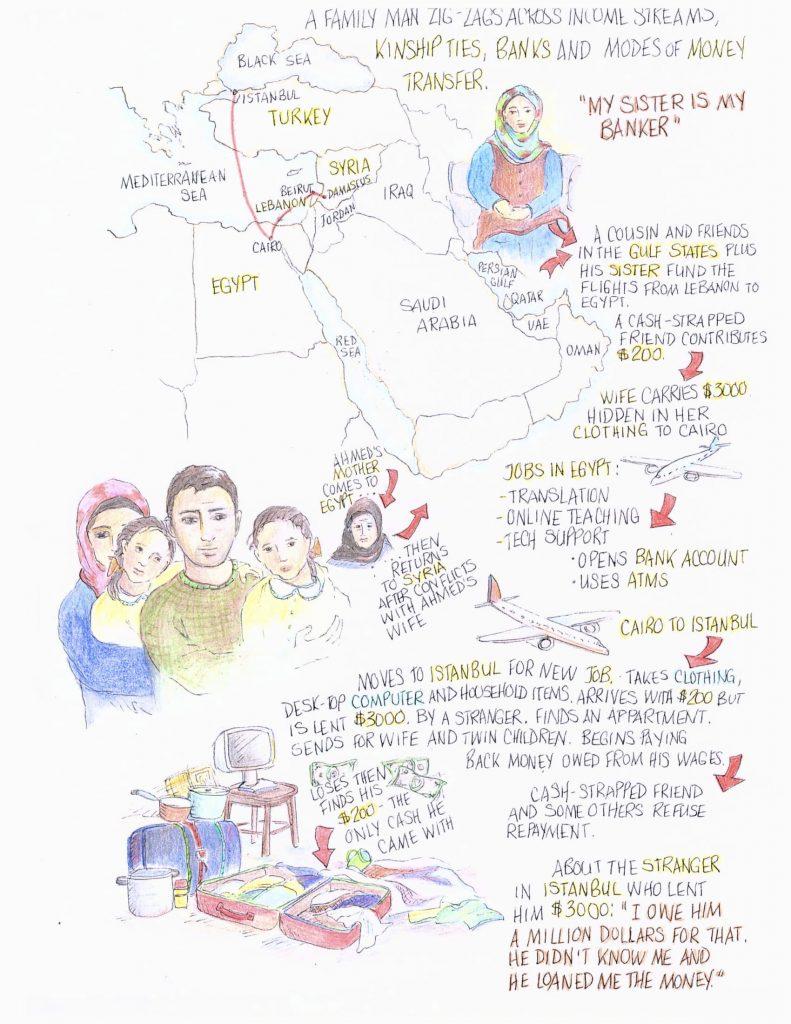 A FAMILY MAN ZIG-ZAGS ACROSS INCOME STREAMS,
KINSHIP TIES, BANKS AND MODES OF MONEY
TRANSFER.
"MY SISTER IS MY
BANKER"
BLACK SEA
ISTANBUL
TURKEY
MEDITERRANEAN
SEA
SYRIA
BEIRUT
DAMASCUS
LEBANON
JORDAN
IRAQ
CAIRO
EGYPT
PERSIAN
GULF
QATAR
SAUDI
ARABIA
UAE
OMAN
RED
SEA
A COUSIN AND FRIENDS
IN THE GULF STATES PLUS
HIS SISTER FUND THE
FLIGHTS FROM LEBANON TO
EGYPT.
A CASH-STRAPPED
FRIEND CONTRIBUTES
$200.
WIFE CARRIES $3000
HIDDEN IN HER
CLOTHING TO CAIRO
JOBS IN EGYPT:
-TRANSLATION
-ONLINE TEACHING
-TECH SUPPORT
•OPENS BANK ACCOUNT
•USES ATMS
AHMED'S
MOTHER
COMES TO
EGYPT...
...THEN
RETURNS
TO SYRIA
AFTER CONFLICTS
WITH AHMED'S
WIFE
CAIRO TO ISTANBUL
MOVES TO ISTANBUL FOR NEW JOB. TAKES CLOTHING,
DESK-TOP COMPUTER AND HOUSEHOLD ITEMS. ARRIVES WITH $200 BUT
IS LENT $3000. BY A STRANGER. FINDS AN APPARTMENT.
SENDS FOR WIFE AND TWIN CHILDREN. BEGINS PAYING
BACK MONEY OWED FROM HIS WAGES.
LOSES THEN
FINDS HIS
$200 - THE
ONLY CASH HE
CAME WITH
CASH-STRAPPED FRIEND
AND SOME OTHERS REFUSE
REPAYMENT.
ABOUT THE STRANGER
IN ISTANBUL WHO LENT
HIM $3000: "I OWE HIM
A MILLION DOLLARS FOR THAT.
HE DIDN'T KNOW ME AND
HE LOANED ME THE MONEY."